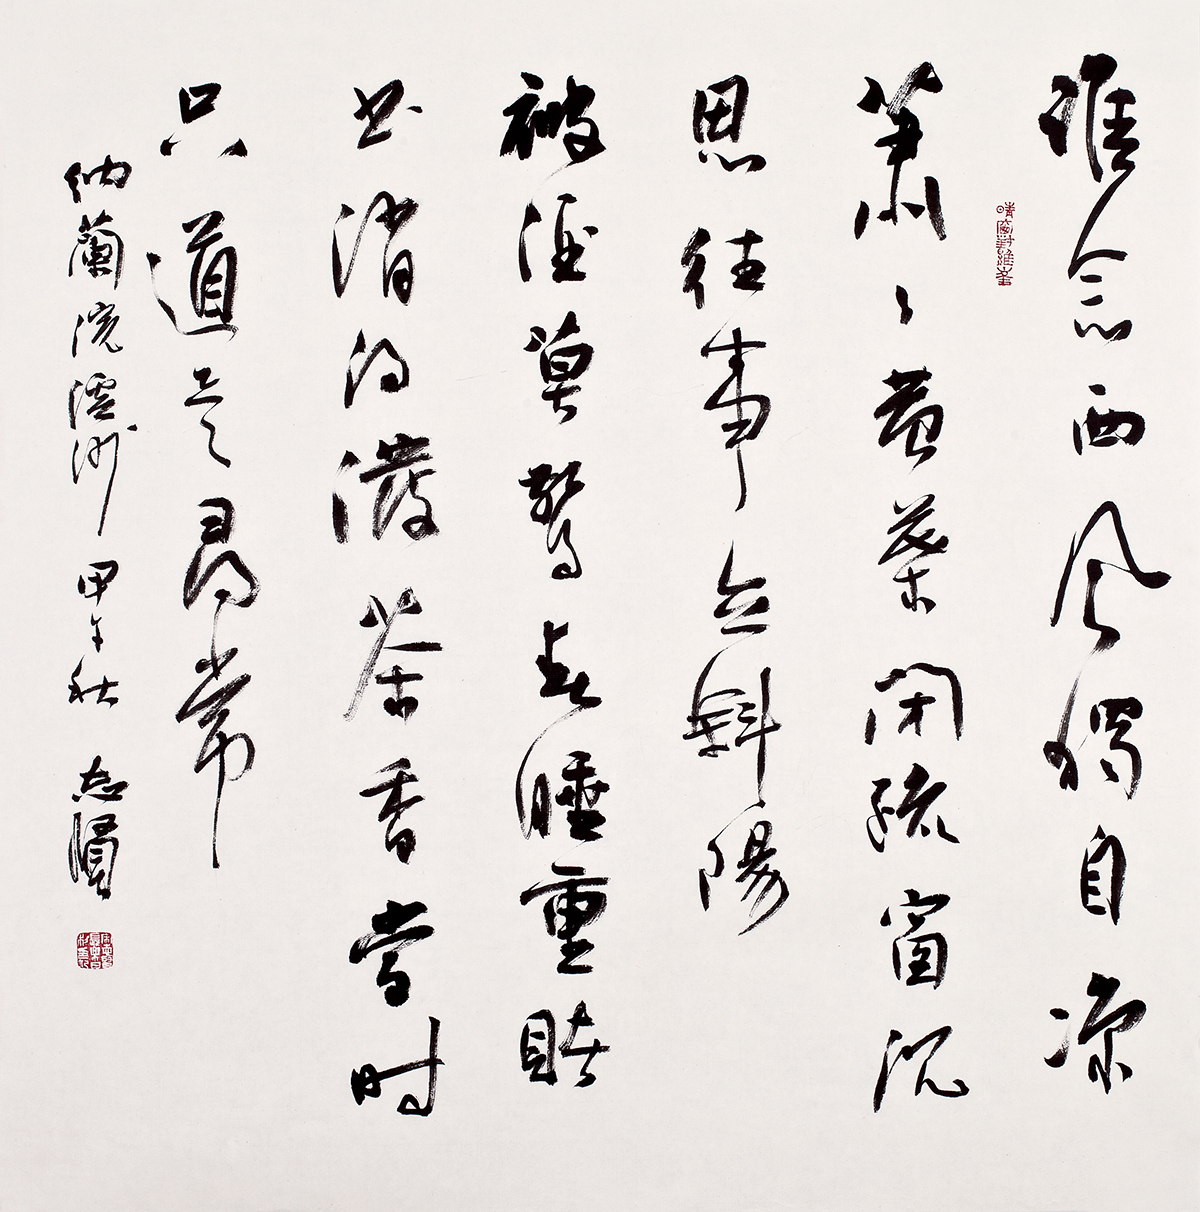 誰念西風獨自凉
蕭〻黃葉閉疏窗沉
思往事立斜陽
被酒莫驚春睡重賭
書消得潑茶香當时
只道是尋常
納蘭浣溪沙 甲午秋 志